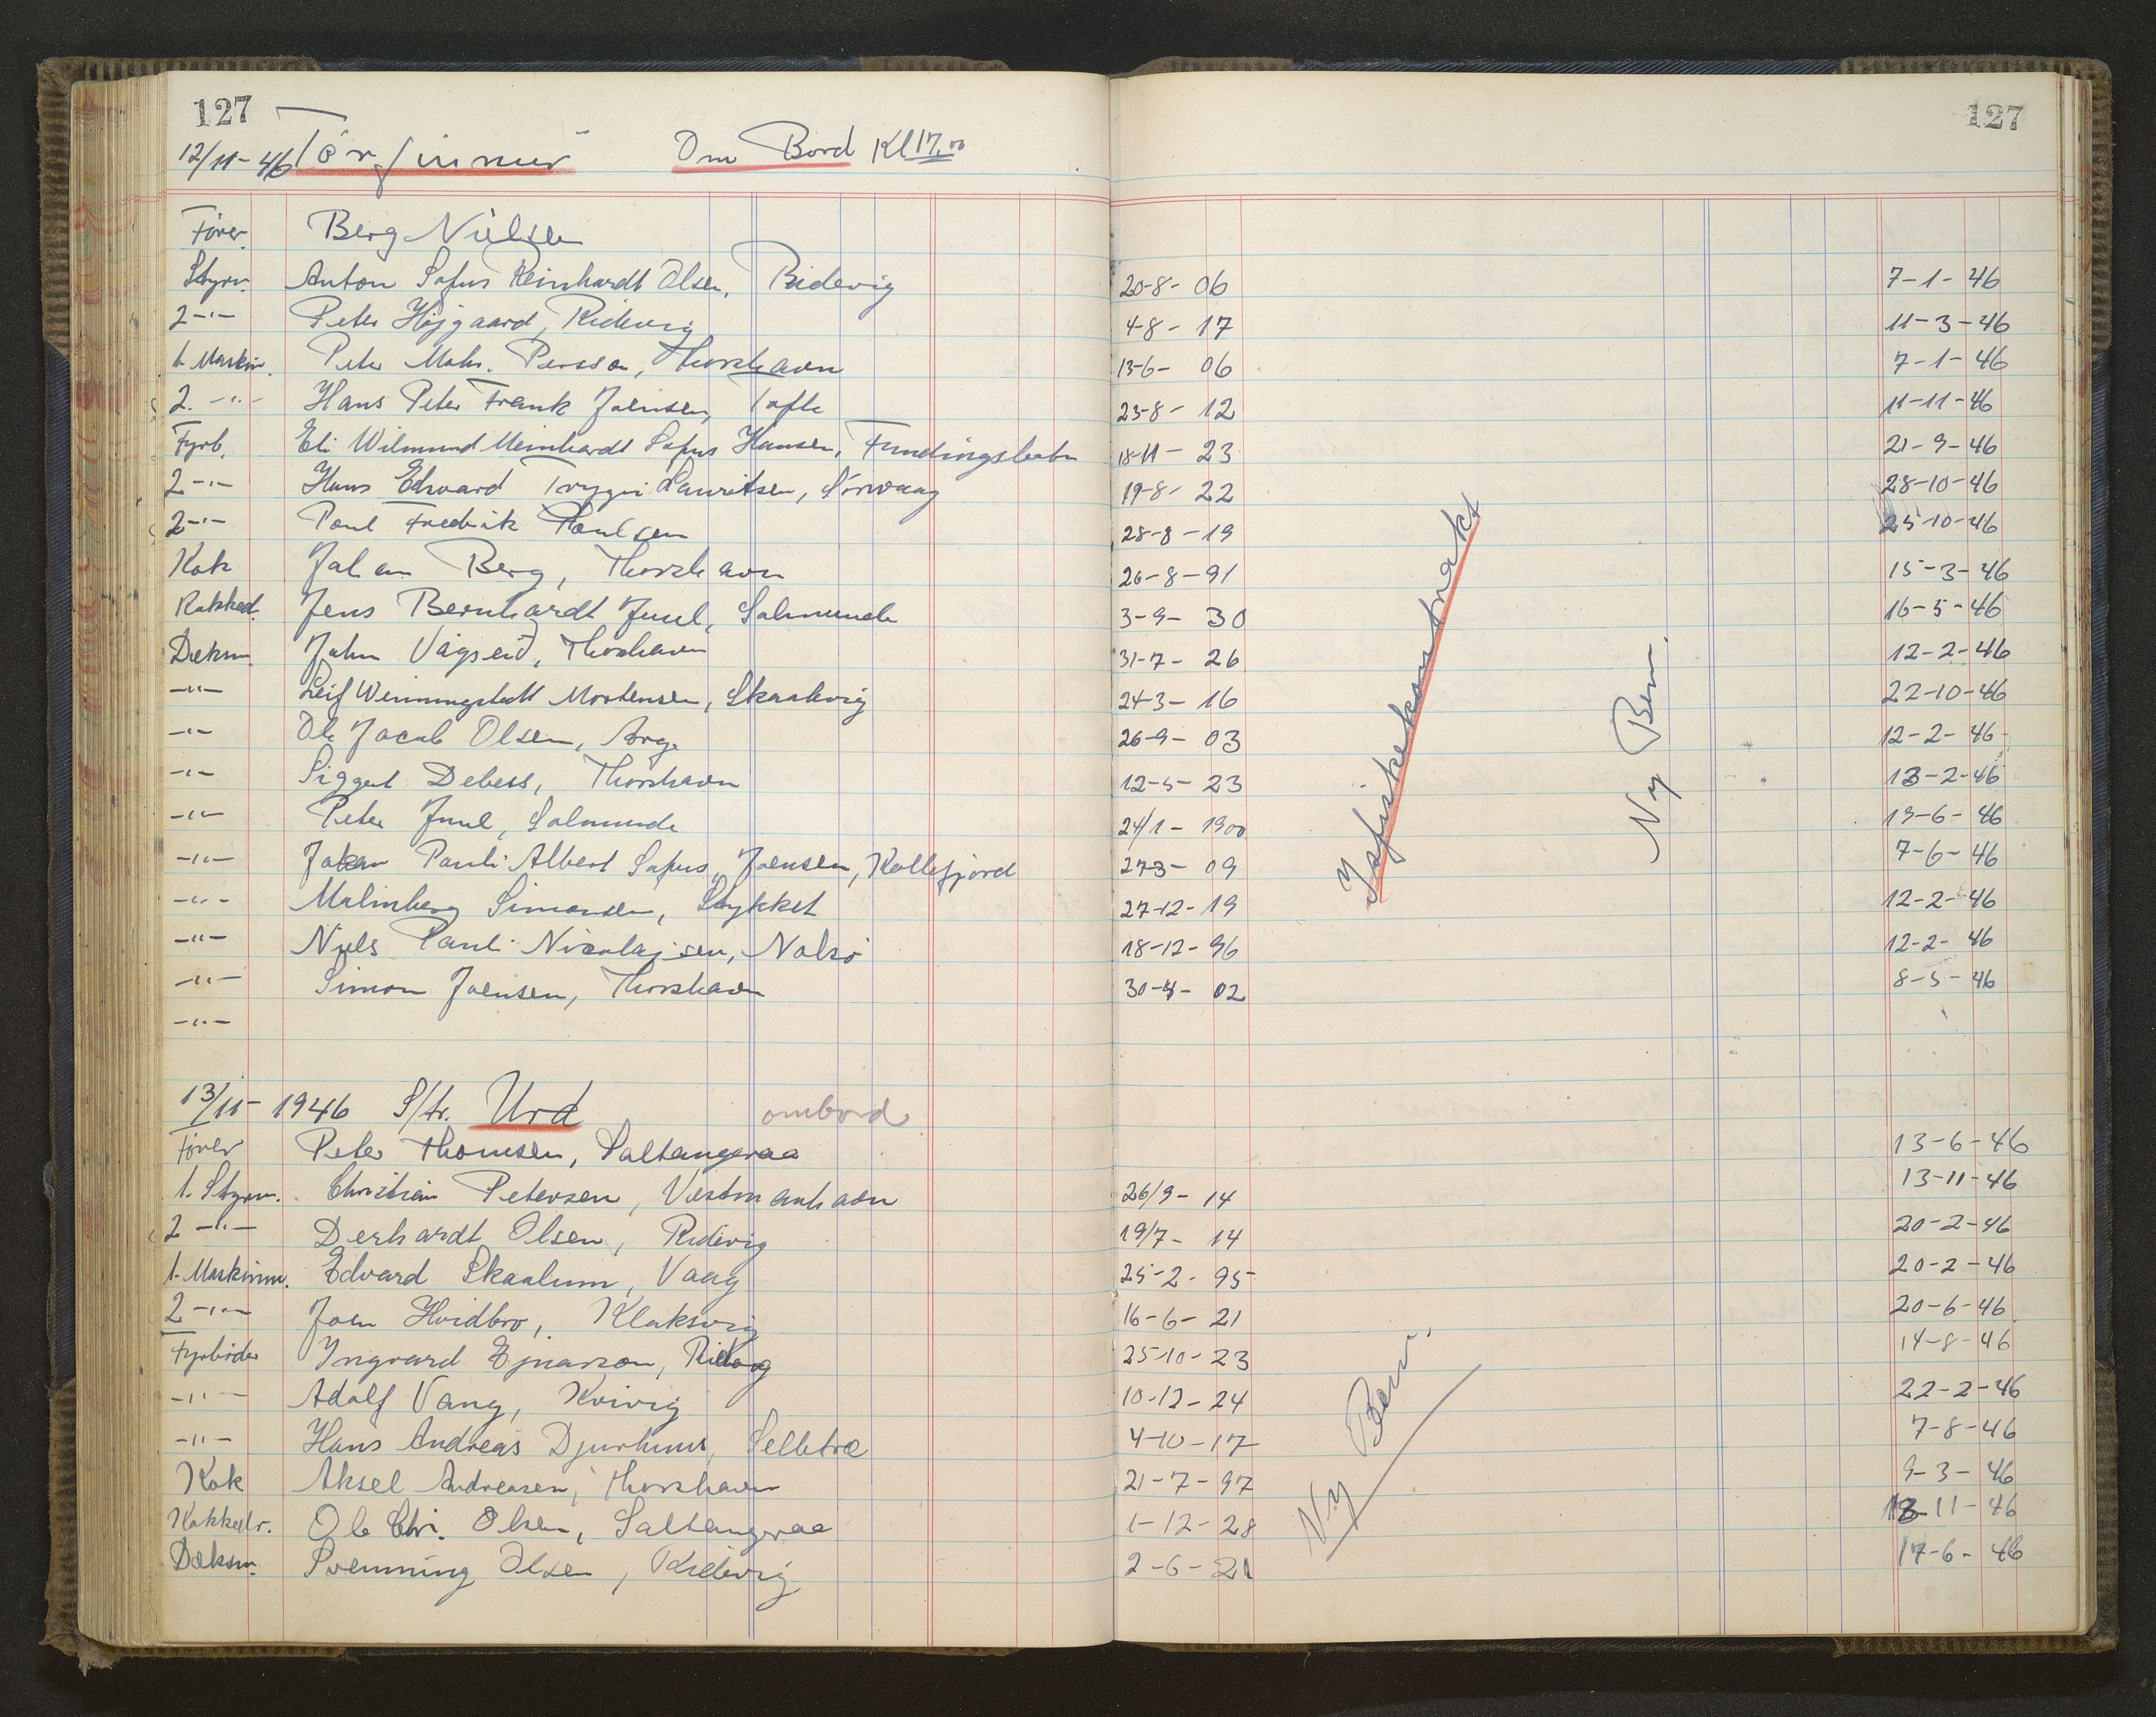 127 127
12/11-46 Tórfinnur Om Bord Kl 17.00
Fører. Berg Nielsen
Styrm. Anton Sofus Reinhardt Olsen, Ridevig 20-8-06 7-1-46
2-"- Peter Højgaard, Ridevig 4-8-17 11-3-46
1. Maskin. Peter Mohr. Persson, Thorshavn 13-6-06 7-1-46
2.-"- Hans Peter Frank Joensen, Tofte 23-8-12 11-11-46
Fyrb. Eli Wilmund Meinhardt Sofus Hansen, Fundingsbotn 18-11-23 21-9-46
2-"- Hans Edward Trygvi Lauritsen, Sørvaag 19-8-22 28-10-46
2-"- Poul Fredrik Poulsen 28-8-19 25-10-46
Kok Johan Berg, Thorshavn 26-8-91 15-3-46
Kokked. Jens Bernhardt Juul, Salmunde 3-9-30 16-5-46
Dæksm. John Vágseið, Thorshavn 31-7-26 12-2-46
-"- Leif Wenningstedt Mortensen, Skaalevig 24-3-16 22-10-46
-"- Ole Jacob Olsen, Arge 26-9-03 12-2-46
-"- Siggert Debess, Thorshavn 12-5-23 13-2-46
-"- Peter Juul, Salmunde 24/1-1900 19-6-46
-"- Johan Pauli Albert Sofus Joensen, Kollefjord 27-3-09 7-6-46
-"- Malmberg Simonsen, Stykket 27-12-19 12-2-46
-"- Niels Pauli Nicolajsen, Nolsø 18-12-96 12-2-46
-"- Simon Joensen, Thorshavn 30-4-02 8-5-46
-"-
Isfiskekontrakt
Ny Bem.
13/11-1946 S/tr. Urd ombord
Fører Peter Thomsen, Saltangeraa 13-6-46
1. Styrm. Christian Petersen, Vestmanhavn 26/9-14 13-11-46
2-"- Derhardt Olsen, Ridevig 19/7-14 20-2-46
1. Maskinm. Edvard Skaalum, Vaag 25-2-95 20-2-46
2-"- Joen Hvidbro, Klaksvig 16-6-21 20-6-46
Fyrbøder Ingvard Ejnarson, Ridevig 25-10-23 14-8-46
-"- Adolf Vang, Kvivig 10-12-24 22-2-46
-"- Hans Andreas Djurhuus, Selletræ 4-10-17 7-8-46
Kok Aksel Andreasen, Thorshavn 21-7-97 9-3-46
Kokkedr. Ole Chr. Olsen, Saltangeraa 1-12-28 13-11-46
Dæksm. Svenning Olsen, Ridevig 2-6-21 17-6-46
Ny Bem.